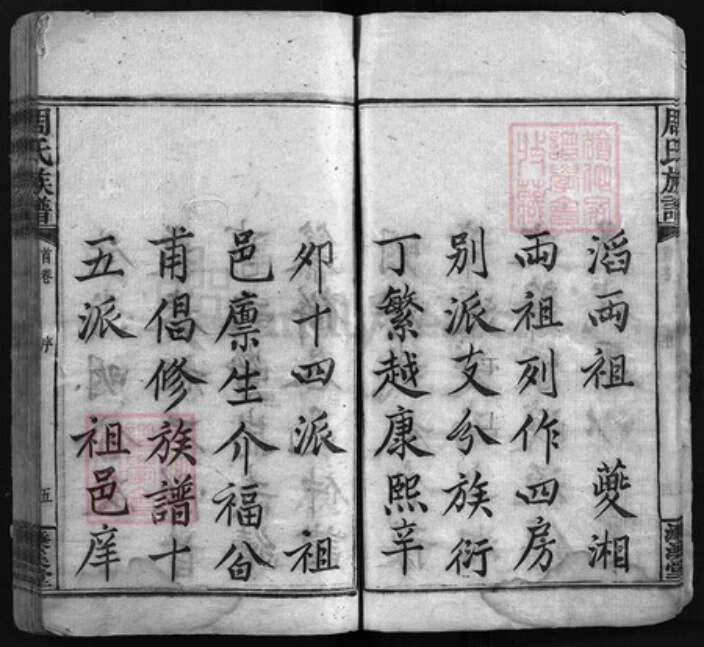 周氏族譜
滔両祖 夔湘
両祖列作四房
别派支分族衍
丁繁越康熙辛
卯十四派 祖
邑廪生介福公
甫倡修族譜十
五派 祖邑庠
周氏族譜
首卷
序
五